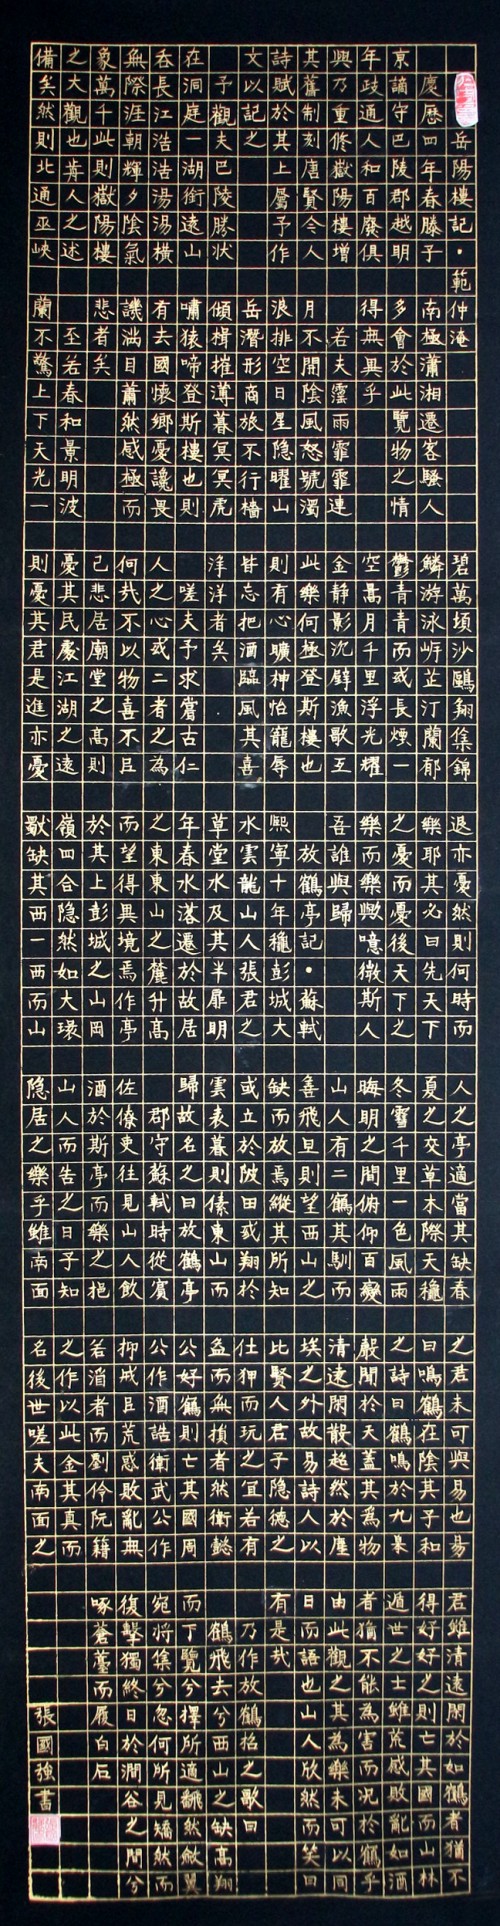 岳陽樓記・範仲淹
慶歷四年春滕子
京謫守巴陵郡越明
年政通人和百廢俱
興乃重修嶽陽樓增
其舊制刻唐賢今人
詩賦於其上屬予作
文以記之
予觀夫巴陵勝狀
在洞庭一湖銜遠山
吞長江浩浩湯湯橫
無際涯朝輝夕陰氣
象萬千此則嶽陽樓
之大觀也前人之述
備矣然則北通巫峽
南極瀟湘遷客騷人
多會於此覽物之情
得無異乎
若夫霪雨霏霏連
月不開陰風怒號濁
浪排空日星隱曜山
岳潛形商旅不行檣
傾楫摧薄暮冥冥虎
嘯猿啼登斯樓也則
有去國懷鄉憂讒畏
譏滿目蕭然感極而
悲者矣
至若春和景明波
蘭不驚上下天光一
碧萬頃沙鷗翔集錦
鱗游泳岸芷汀蘭郁
鬱青青而或長煙一
空暠月千里浮光耀
金靜影沉璧漁歌互
此樂何極登斯樓也
則有心曠神怡寵辱
皆忘把酒臨風其喜
洋洋者矣
嗟夫予求嘗古仁
人之心或二者之為
何哉不以物喜不以
己悲居廟堂之高則
憂其民處江湖之遠
則憂其君是進亦憂
退亦憂然則何時而
樂耶其必曰先天下
之憂而憂後天下之
樂而樂歟噫微斯人
吾誰與歸
放鶴亭記・蘇軾
熙寧十年穐彭城大
水雲龍山人張君之
草堂水及其半扉明
年春水落遷於故居
之東東山之麓升高
而望得異境焉作亭
於其上彭城之山岡
嶺四合隱然如大環
獸缺其西一西而山
人之亭適當其缺春
夏之交草木際天穐
冬雪千里一色風雨
晦明之間俯仰百變
山人有二鶴其馴而
善飛旦則望西山之
缺而放焉縱其所知
或立於陂田或翔於
雲表暮則傃東山而
歸故名之曰放鶴亭
郡守蘇軾時從賓
佐僚吏往見山人飲
酒於斯亭而樂之挹
山人而告之曰子知
隱居之樂乎雖南面
之君未可與易也易
曰鳴鶴在陰其子和
之詩曰鶴鳴於九皋
嚴聞於天蓋其為物
清遠閑散超然於塵
埃之外故易詩人以
比賢人君子隱德之
仕狎而玩之宜若有
益而無損者然衛懿
公好鶴則亡其國周
公作酒誥衛武公作
抑戒以荒惑敗亂無
若酒者而劉伶阮籍
之作以此全其真而
名後世嗟夫南面之
君雖清遠閑於如鶴者猶不
得好好之則亡其國而山林
遁世之士雖荒惑敗能如酒
者猶不能為害而況於鶴乎
由此觀之其為樂未可以同
日而語也山人欣然而笑曰
有是哉
乃作放鶴招之歌曰
鶴飛去兮西山之缺高翔
而下覽兮擇所適翻然斂翼
宛將集兮忽何所見矯然而
復擊獨終日於澗谷之間兮
啄蒼薹而履白石
張國強書